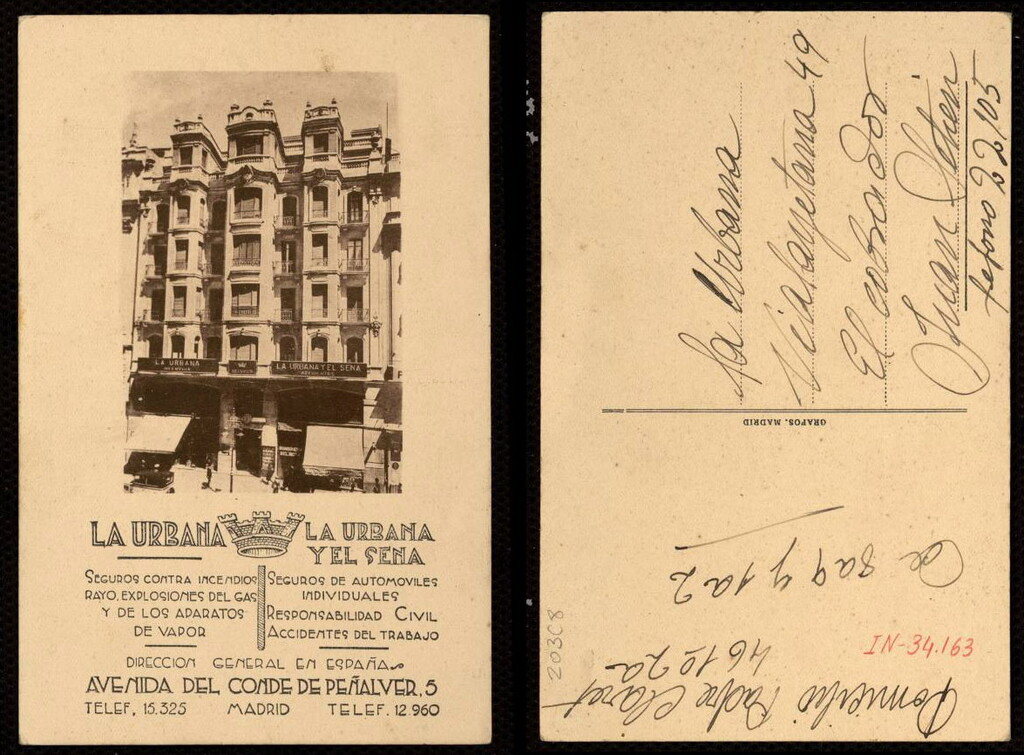 LA URBANA
LA URBANA Y EL SENA
LA URBANA
LA URBANA
Y EL SENA
SEGUROS CONTRA INCENDIOS
RAYO, EXPLOSIONES DEL GAS
Y DE LOS APARATOS
DE VAPOR
SEGUROS DE AUTOMOVILES
INDIVIDUALES
RESPONSABILIDAD CIVIL
ACCIDENTES DEL TRABAJO
DIRECCION GENERAL EN ESPAÑA
AVENIDA DEL CONDE DE PEÑALVER, 5
TELEF, 15.325 MADRID TELEF. 12.960
La Urbana
Via layetana 49
El cobrador
Juan
22105
GRAFOS. MADRID
De 8 a 9 y 1 a 2
Domicilio Padre Claret
461 02 2a
IN-34.163
203C8